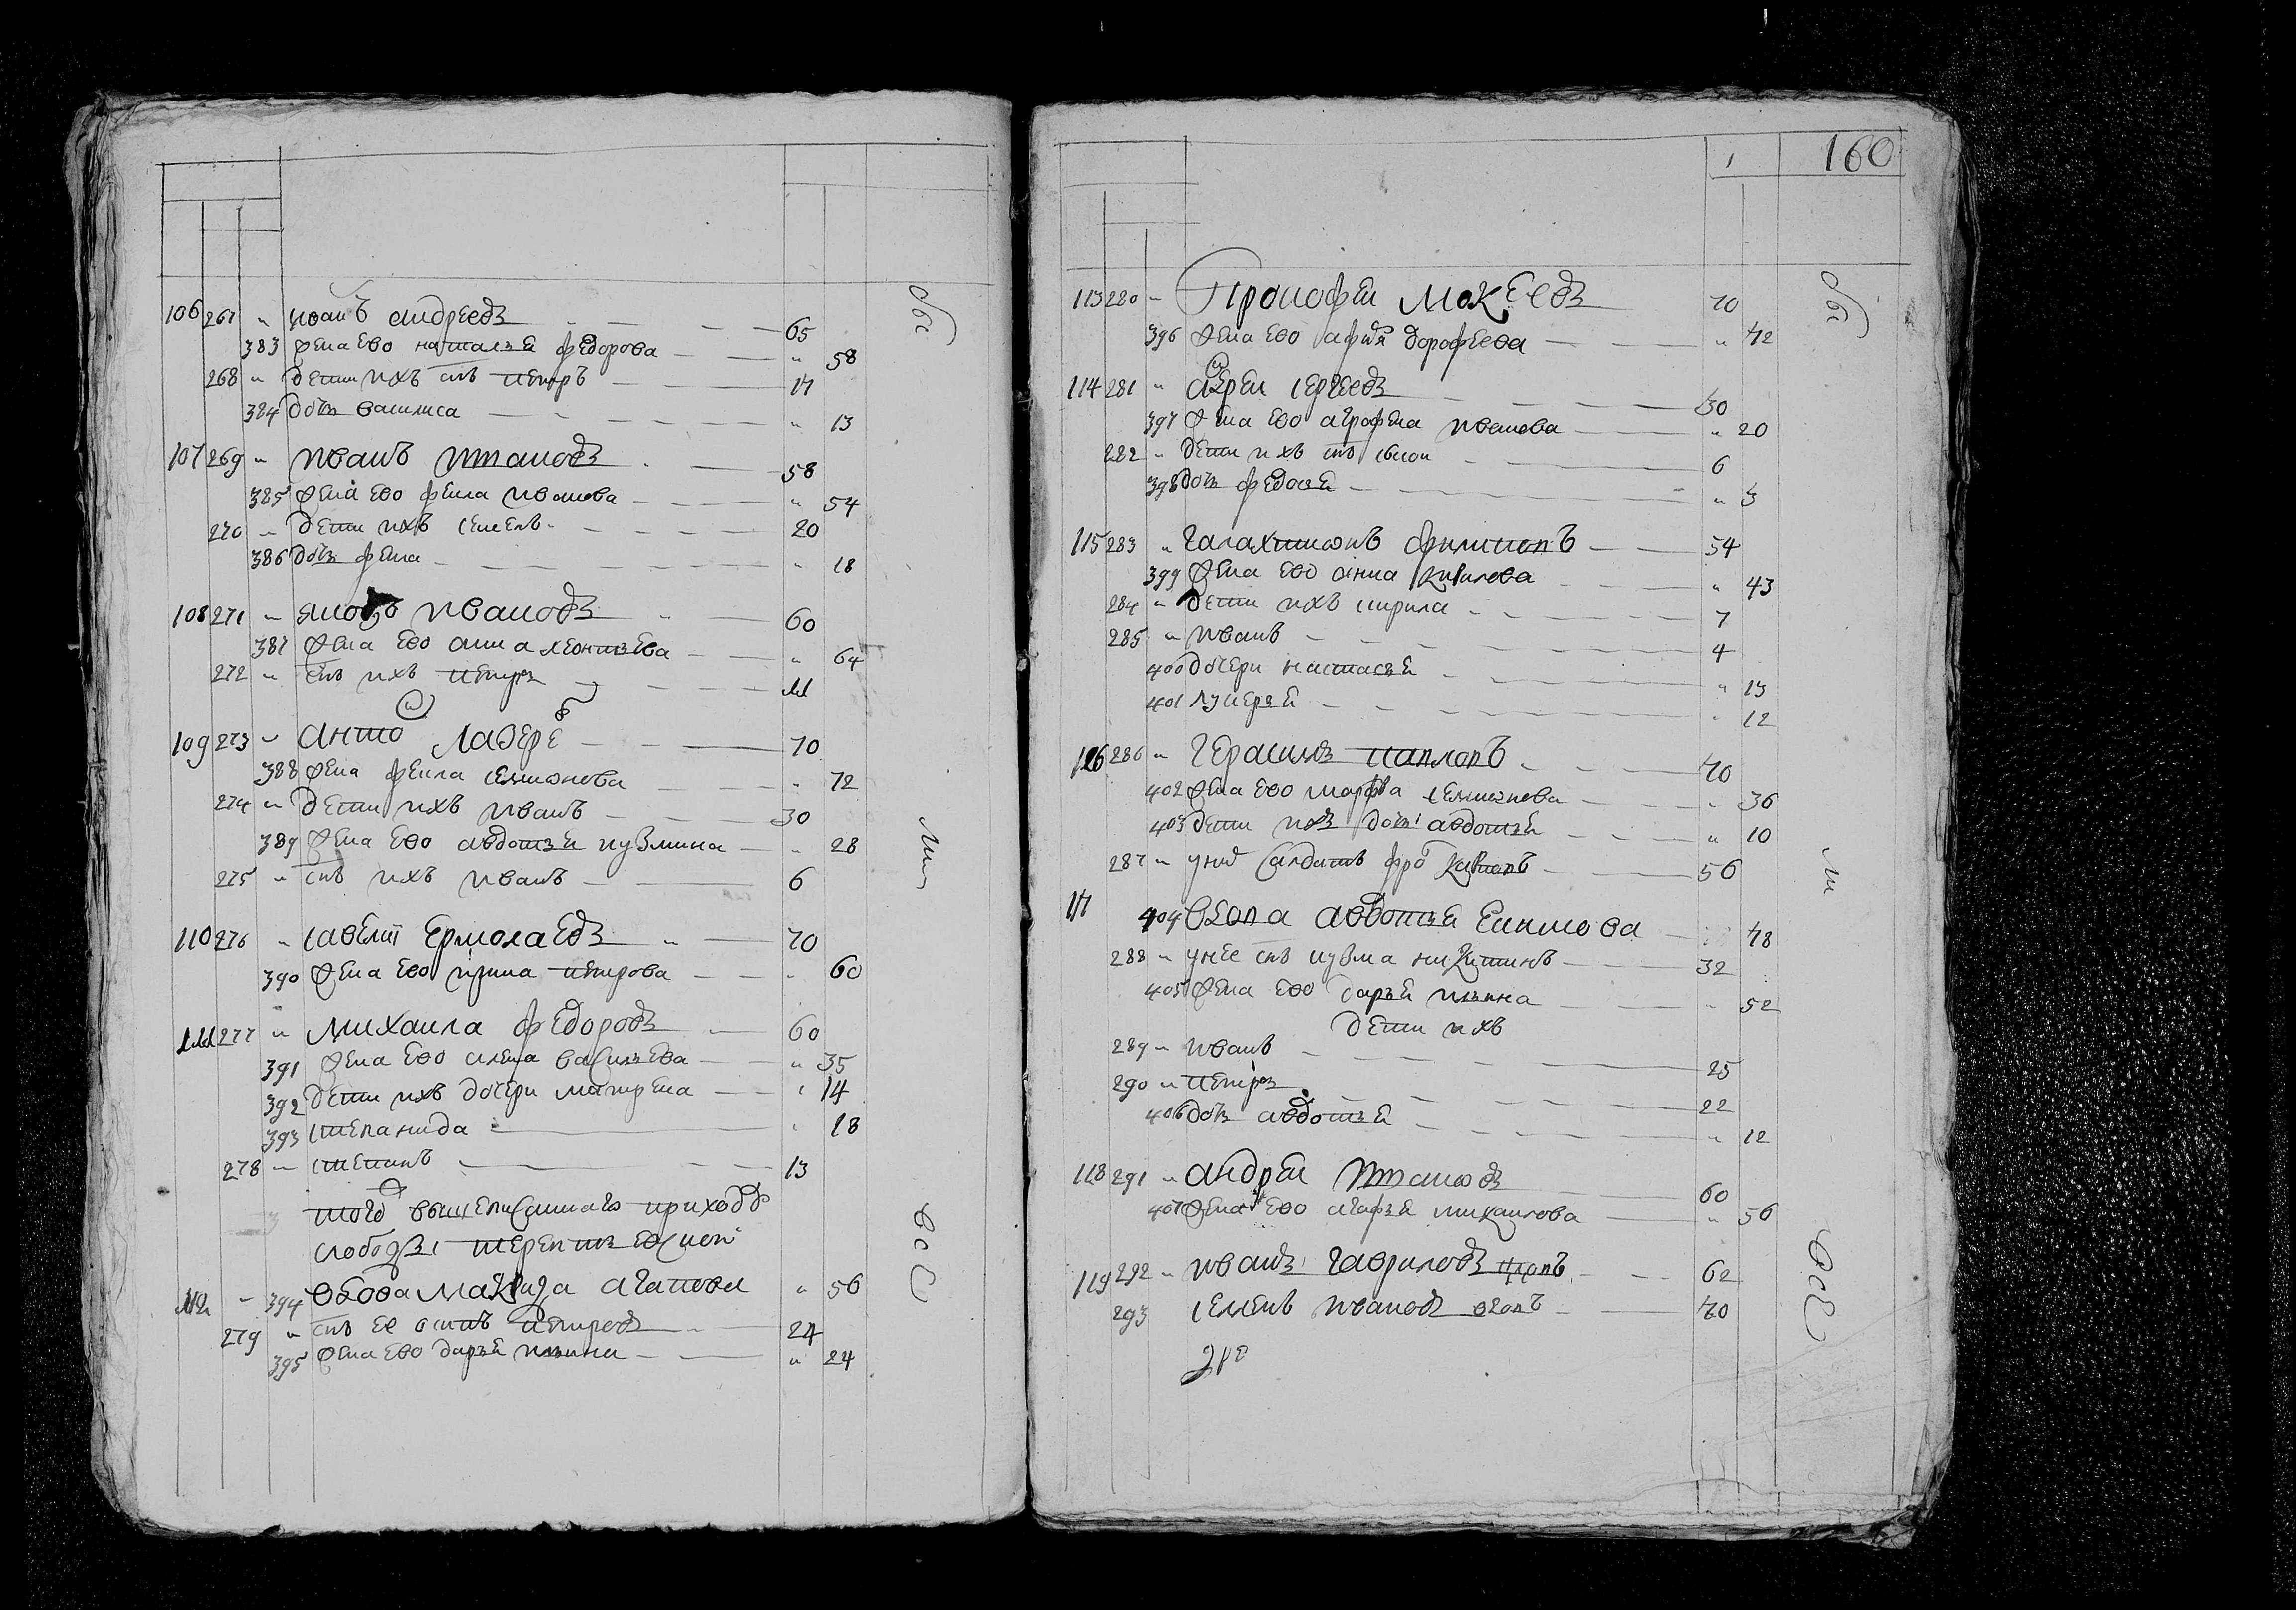 106 267 " иванъ андреевъ 65
383 жена ево наталья федорова " 58
268 " дети ихъ снъ петръ 17
384 дочь василиса " 13
107 269 " иванъ потаповъ 58
385 жена ево фекла иванова " 54
270 " дети ихъ семенъ 20
386 дочь фекла " 18
108 271 " яковъ ивановъ 60
387 жена ево анна леонтьева " 64
272 " снъ ихъ петръ 11
109 273 " антонъ лаверевъ 70
388 жена фекла семионова " 72
274 " дети ихъ иванъ 30
389 жена ево авдотья кузмина " 28
275 " снъ ихъ иванъ 6
110 276 " савелии ермолаевъ " 70
390 жена ево ирина петрова " 60
111 277 " михаила федоровъ 60
391 жена ево елена васильева " 35
392 дети ихъ дочери матрена " 14
393 степанида " 18
278 " степанъ 13
того вышеписаннаго приходу
слободы терентьевской
112 " 394 вдова агапова " 56
279 " снъ ее осипъ петровъ 24
395 жена ево дарья ильина " 24
обе
ми
все
160
113 280 " Прокофеи макеевъ 70
396 жена ево афимя дорофеева " 42
114 281 " сергеевъ 30
397 жена ево аграфена иванова " 20
282 " дети ихъ снъ 6
398 дочь федосья " 3
115 283 " галахтионъ филипопъ 54
399 жена ево анна кирилова " 43
284 " дети ихъ кирила 7
285 " иванъ 4
400 дочери настасья " 13
401 лукерья " 12
116 286 " герасимъ карповъ 40
402 жена ево марфа семионова " 36
403 дети ихъ дочь авдотья " 10
287 " унего салдатъ 56
117 404 вдова авдотья екимова 48
288 " унее снъ кузма никитинъ 32
405 жена ево дарья ильина " 52
дети ихъ
289 " иванъ 25
290 " петръ 22
406 дочь авдотья " 12
118 291 " андреи потаповъ 60
407 жена ево агафья михаилова " 56
119 292 " иванъ гавриловъ 62
293 семенъ ивановъ вдовъ 40
обе
ми
все